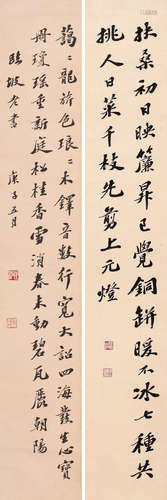 扶桑初日映簾昇已覺銅缾暖不冰七種共
挑人日菜千枝先翦上元燈
藹〻龍旂色琅〻木鐸音數行寬大詔四海發生心寶
冊瓊瑤重新庭松桂香雪消春未動碧瓦麗朝陽
臨坡老書 庚子五月